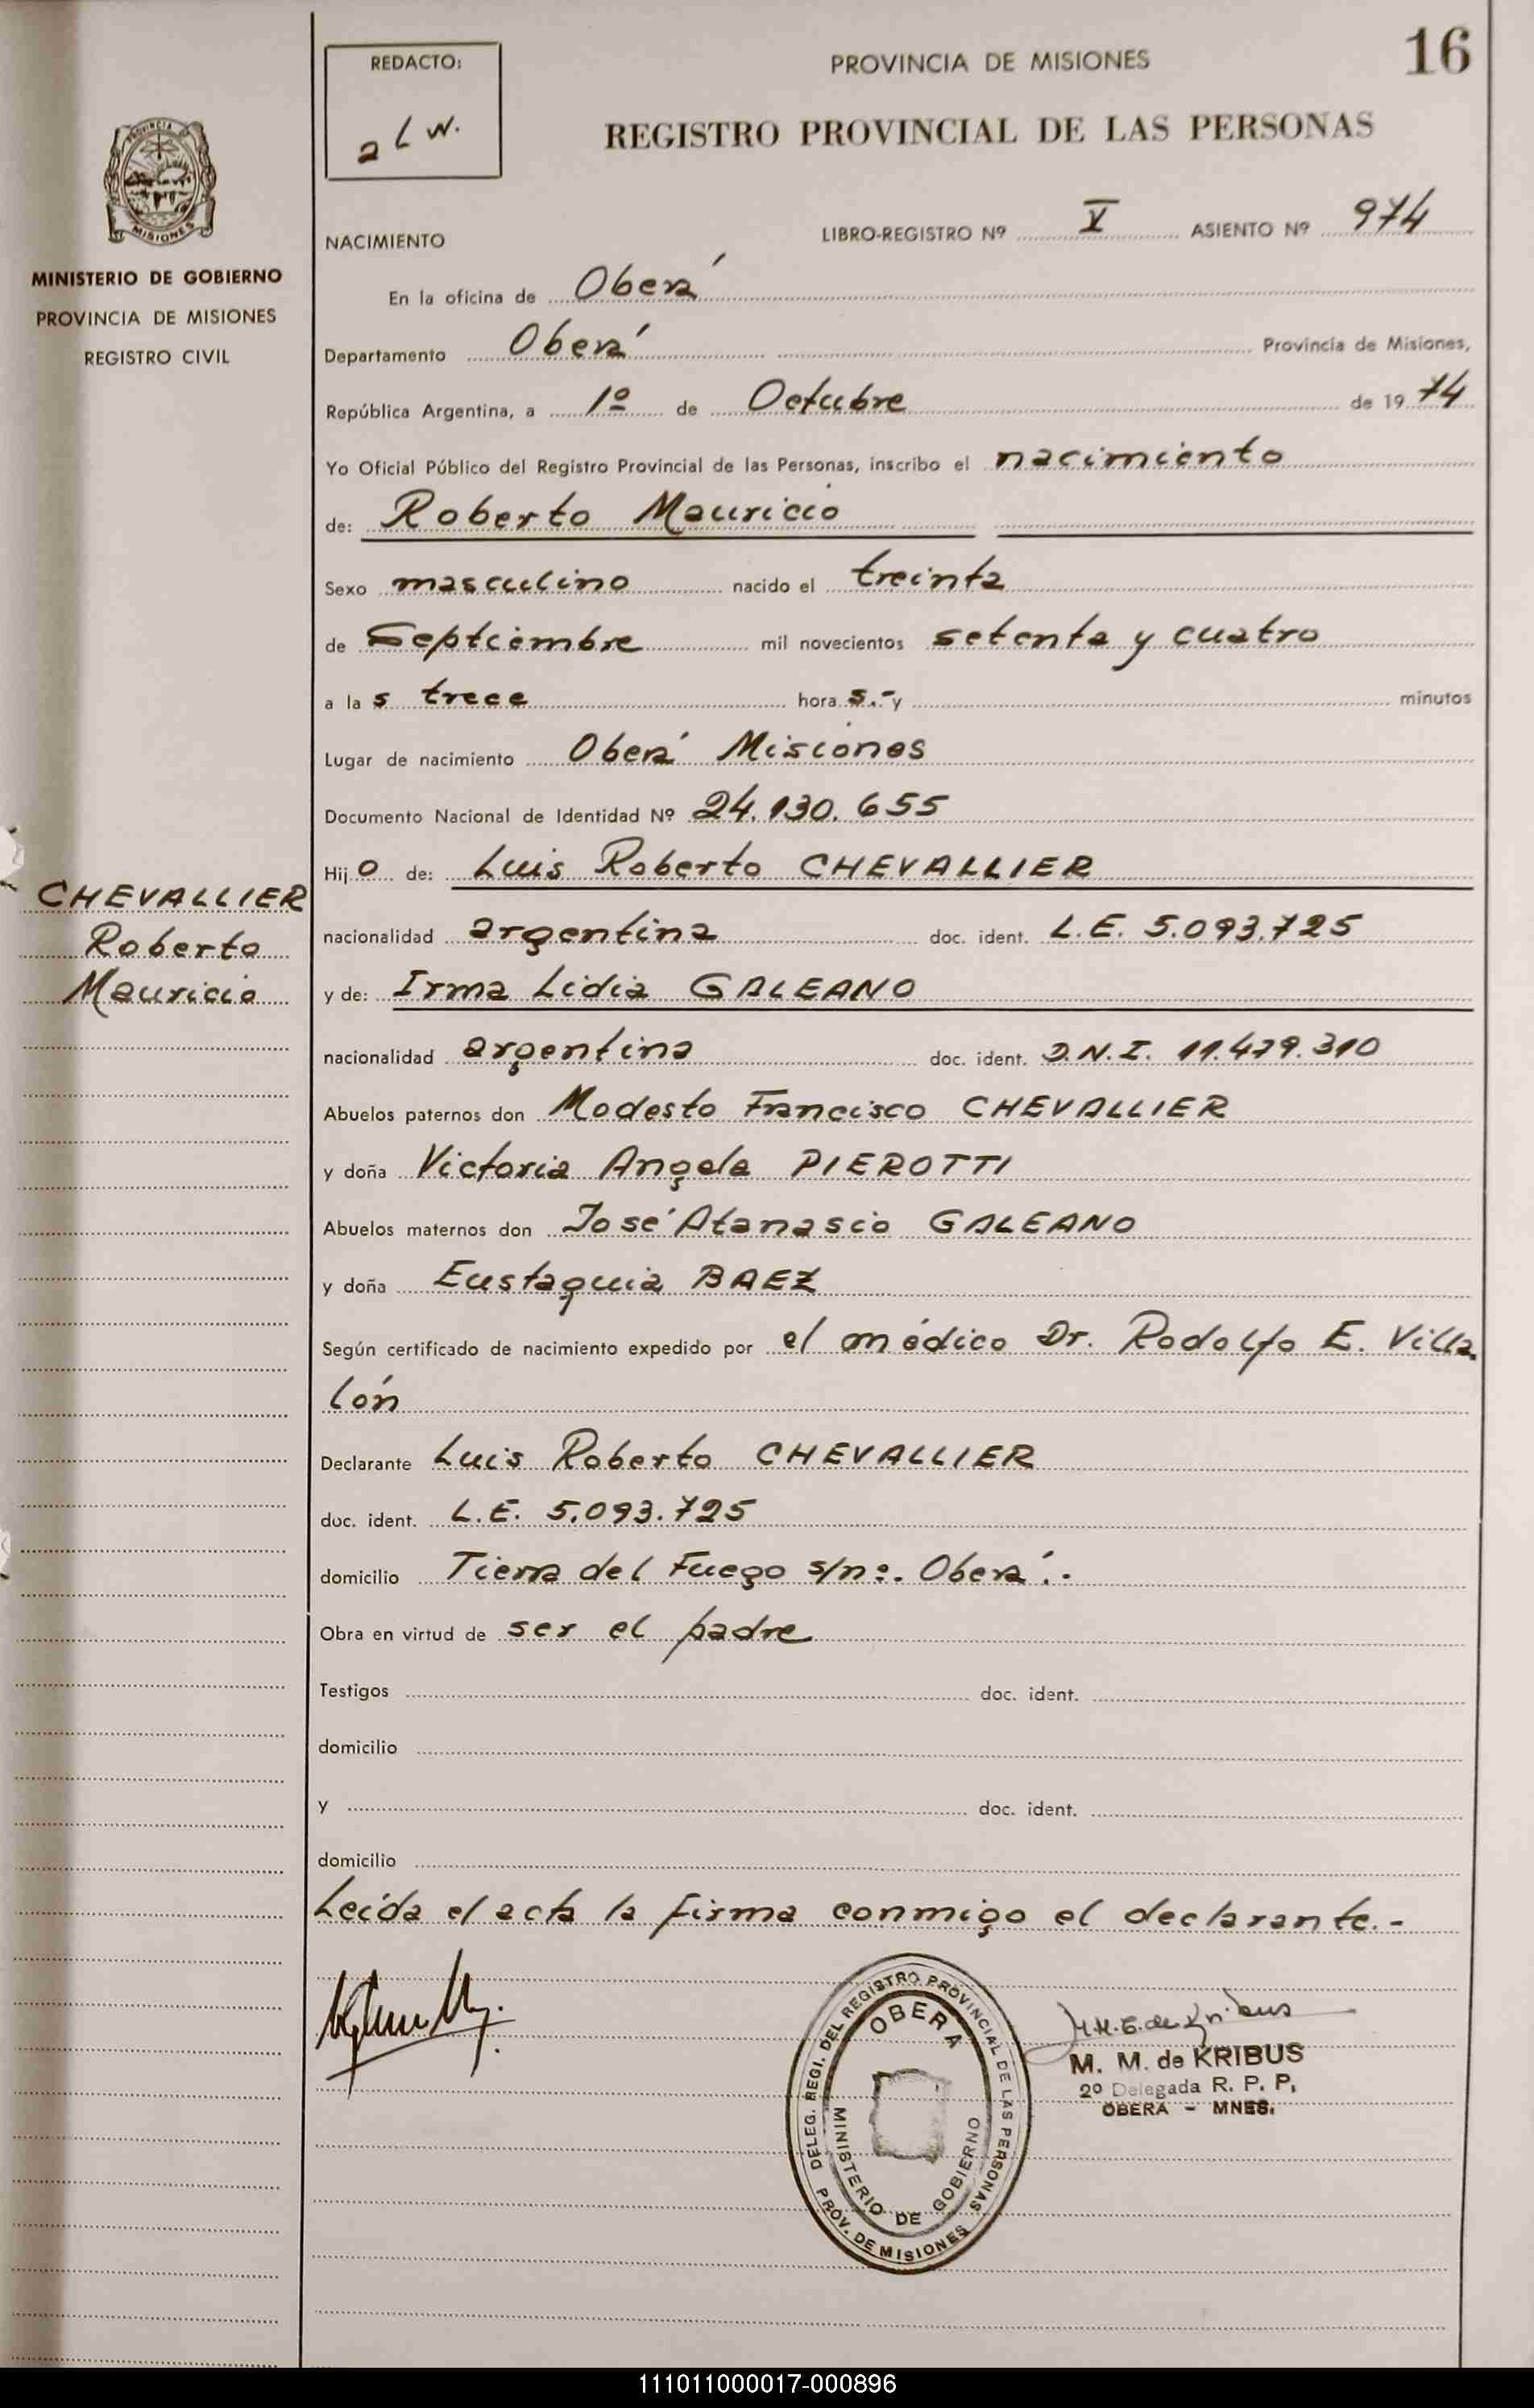 16
REDACTO:
a L w.
PROVINCIA DE MISIONES
REGISTRO PROVINCIAL DE LAS PERSONAS
PROVINCIA
MISIONES
MINISTERIO DE GOBIERNO
PROVINCIA DE MISIONES
REGISTRO CIVIL
NACIMIENTO LIBRO-REGISTRO Nº V ASIENTO Nº 974
En la oficina de Oberá
Departamento Oberá Provincia de Misiones,
República Argentina, a 1º de Octubre de 19 74
Yo Oficial Público del Registro Provincial de las Personas, inscribo el nacimiento
de: Roberto Mauricio
Sexo masculino nacido el treinta
de Septiembre mil novecientos setenta y cuatro
a la s trece hora s.- y minutos
Lugar de nacimiento Oberá Misiones
Documento Nacional de Identidad Nº 24.130.655
Hij o de: Luis Roberto CHEVALLIER
CHEVALLIER
Roberto
Mauricio
nacionalidad argentina doc. ident. L.E. 5.093.725
y de: Irma Lidia GALEANO
nacionalidad argentina doc. ident. D.N.I. 11.479.310
Abuelos paternos don Modesto Francisco CHEVALLIER
y doña Victoria Angela PIEROTTI
Abuelos maternos don José Atanasio GALEANO
y doña Eustaquia BAEZ
Según certificado de nacimiento expedido por el médico Dr. Rodolfo E. Villa
lón
Declarante Luis Roberto CHEVALLIER
doc. ident. L.E. 5.093.725
domicilio Tierra del Fuego s/nº. Oberá.-
Obra en virtud de ser el padre
Testigos doc. ident.
domicilio
y doc. ident.
domicilio
Leída el acta la firma conmigo el declarante.-
DELEG. REGI. DEL REGISTRO PROVINCIAL DE LAS PERSONAS
PROV. DE MISIONES
OBERA
MINISTERIO DE GOBIERNO
M. M. de KRIBUS
2º Delegada R. P. P.
OBERA - MNES.
111011000017-000896